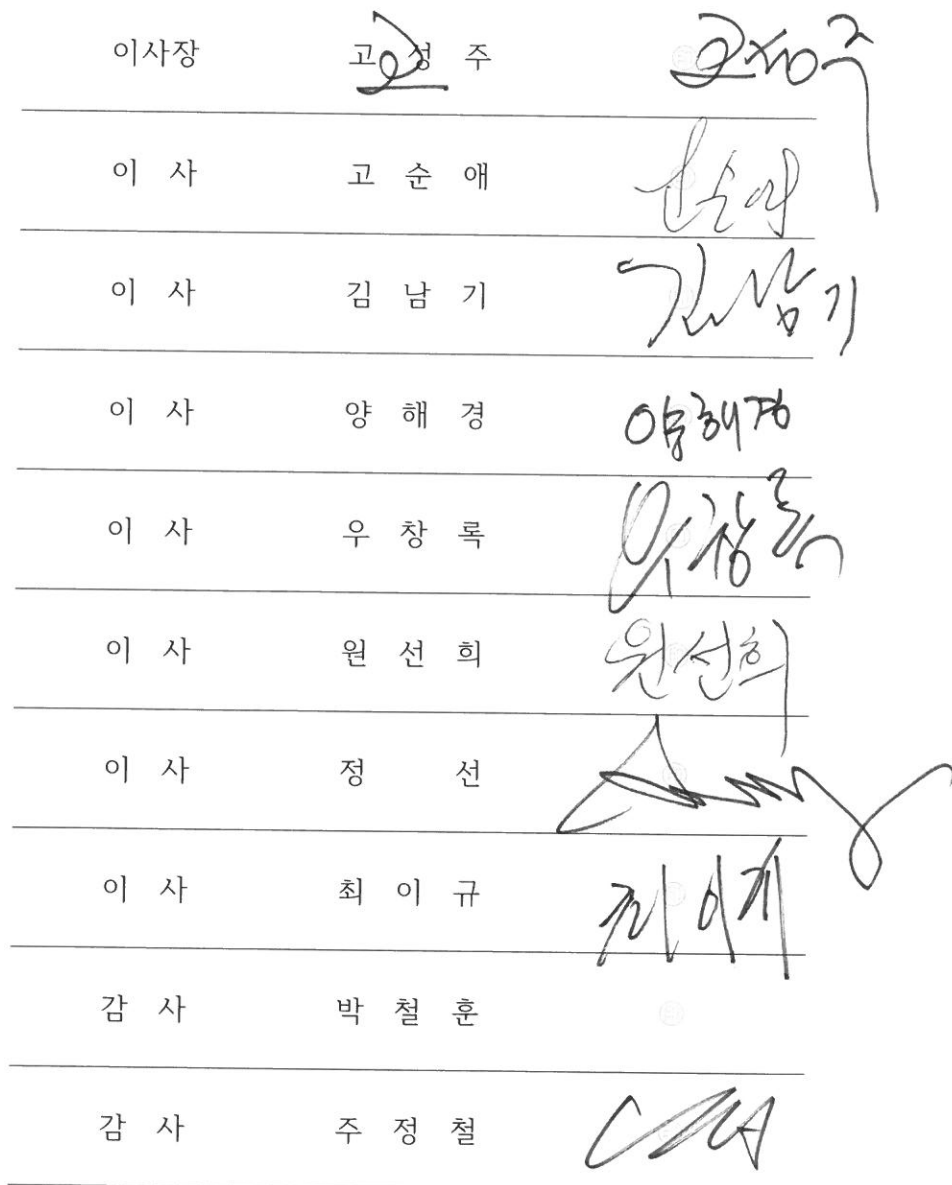 이사장 고성주 고성주
이 사 고 순 애 고순애
이 사 김 남 기 김남기
이 사 양 해 경 양해경
이 사 우 창 록 우창록
이 사 원 선 희 원선희
이 사 정 선
이 사 최 이 규 최이규
감 사 박 철 훈 ㊞
감 사 주 정 철